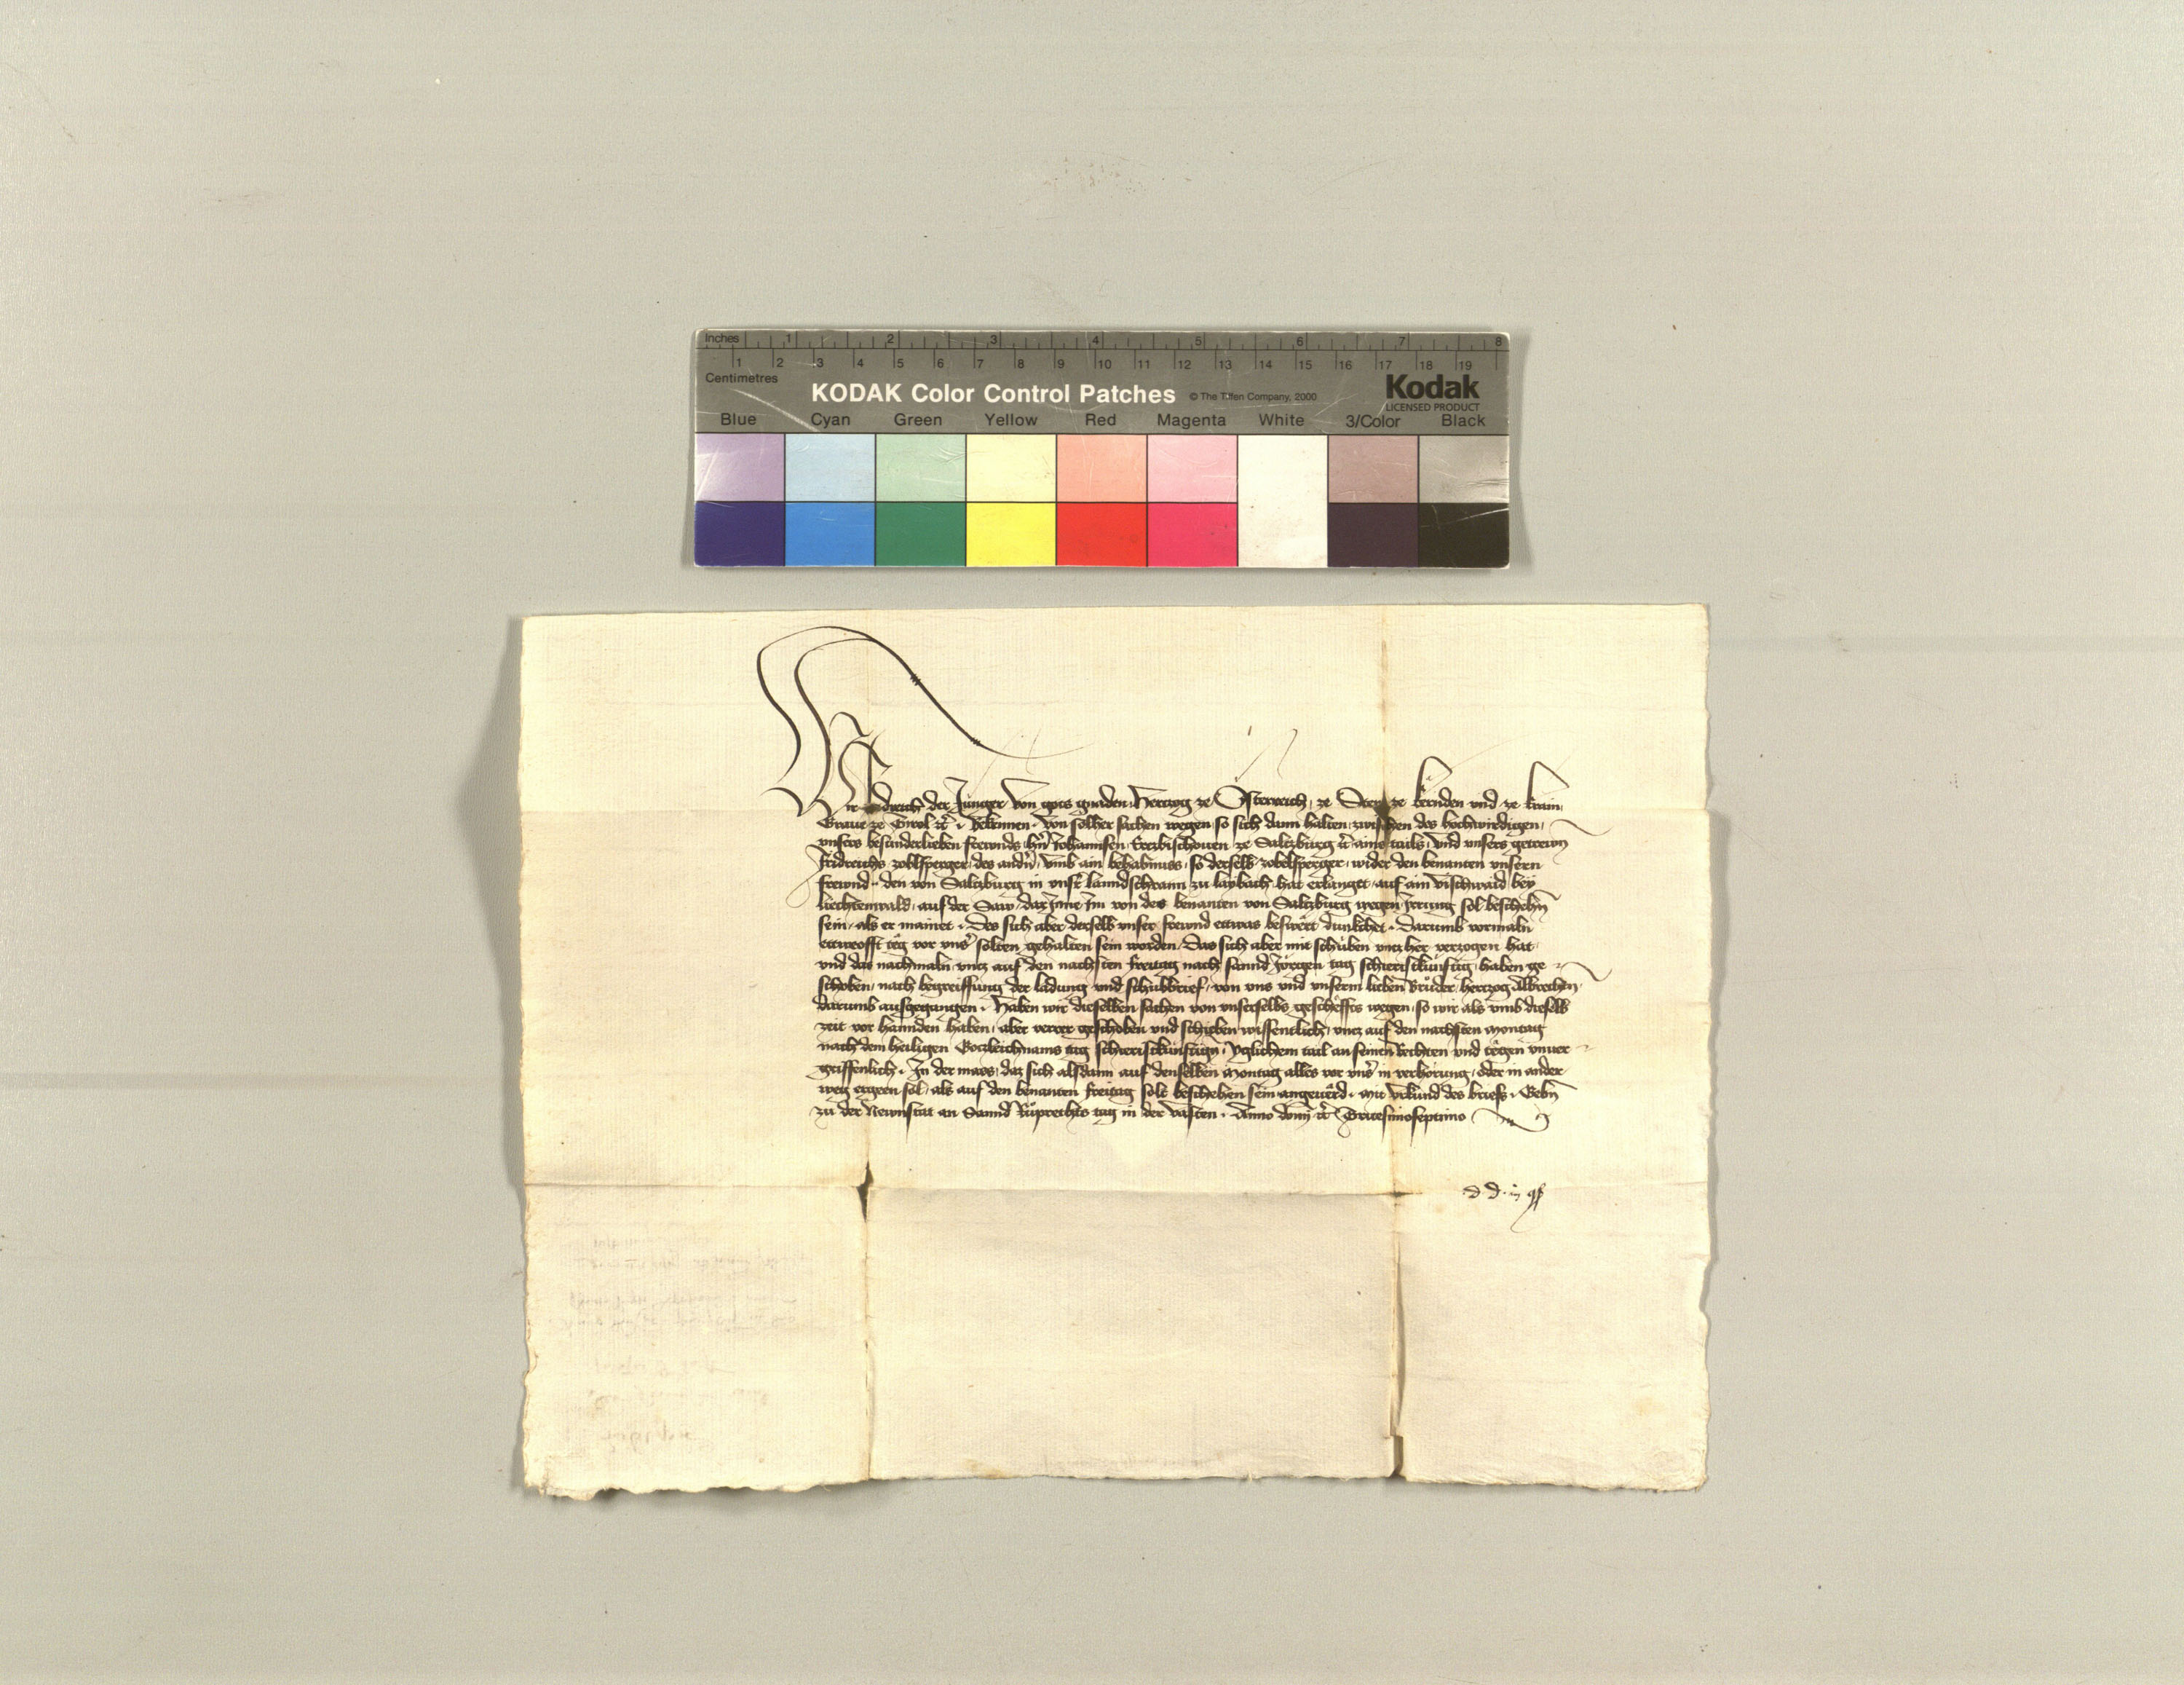 Inches 1 2 3 4 5 6 7 8
1 2 3 4 5 6 7 8 9 10 11 12 13 14 15 16 17 18 19
Centimetres
KODAK Color Control Patches © The Tiffen Company, 2000 Kodak
LICENSED PRODUCT
Blue Cyan Green Yellow Red Magenta White 3/Color Black
Wir Fridreich der Jünger von gots gnaden, Hertzog ze Österreich, ze Steir ze kernden und ze krain,
Graue ze Tirol etc̃. Bekennen. Von solher sachen wegen, so sich dann halten, zwischen des hochwirdigen,
unsers besunderlieben frewnds, hñ Johannsen Ertzbischouen ze Saltzburg etc̃ ains tails, und unsers getrewn
Fridreichs zoblsperger, des andñ, vmb ain behabnuss, so derselb zobelsperger, wider den benanten unsern
frewnd, den von Saltzburg in vnsr̃ lanndschrann zu laybach hat erlanget, auf ain vischwaid bey
Liechtenwald, auf der Saw, daz Inne Im von des benanten von Saltzburg wegen Irrung sol beschehñ
sein, als er mainet. Des sich aber derselb unser frewnd ettwas beswert dunkchet. Darumb vormaln
ettweofft tëg vor vnsˀ solten gehalten sein worden, Das sich aber mit schüben vntzher verzogen hat,
und daz nachmaln vntz auf den nachsten freitag nach sannd Jörgen tag schieristkünftig, haben ge-
schoben, nach begreiffung der ladung und schubbrief, von uns und unserm lieben Brüder, hertzog Albrechtñ,
darumb ausgegangen. Haben wir dieselben sachen von unserselbs geschëffts wegen, so wir als vmb dieselb
zeit vor hannden haben, aber verrer geschoben und schieben wissentlich, vntz auf den nachsten Montag
nach dem heiligen Gotzleichnams tag schieristkünftign, Yglichem tail an seinen Rechten und tëgen unuer-
griffenlich. In der mass, daz sich alsdann auf denselben Montag alles vor vnsˀ in verhörung, oder in ander
weg ergeen sol, als auf den benanten freitag solt beschehen sein angeuerd. Mit vrkund des briefs. Gebñ
zu der Newnstat an Sannd Rüprechts tag in der vasten. Anno dom̃ etc̃ Tricesimoseptimo
d. d. in